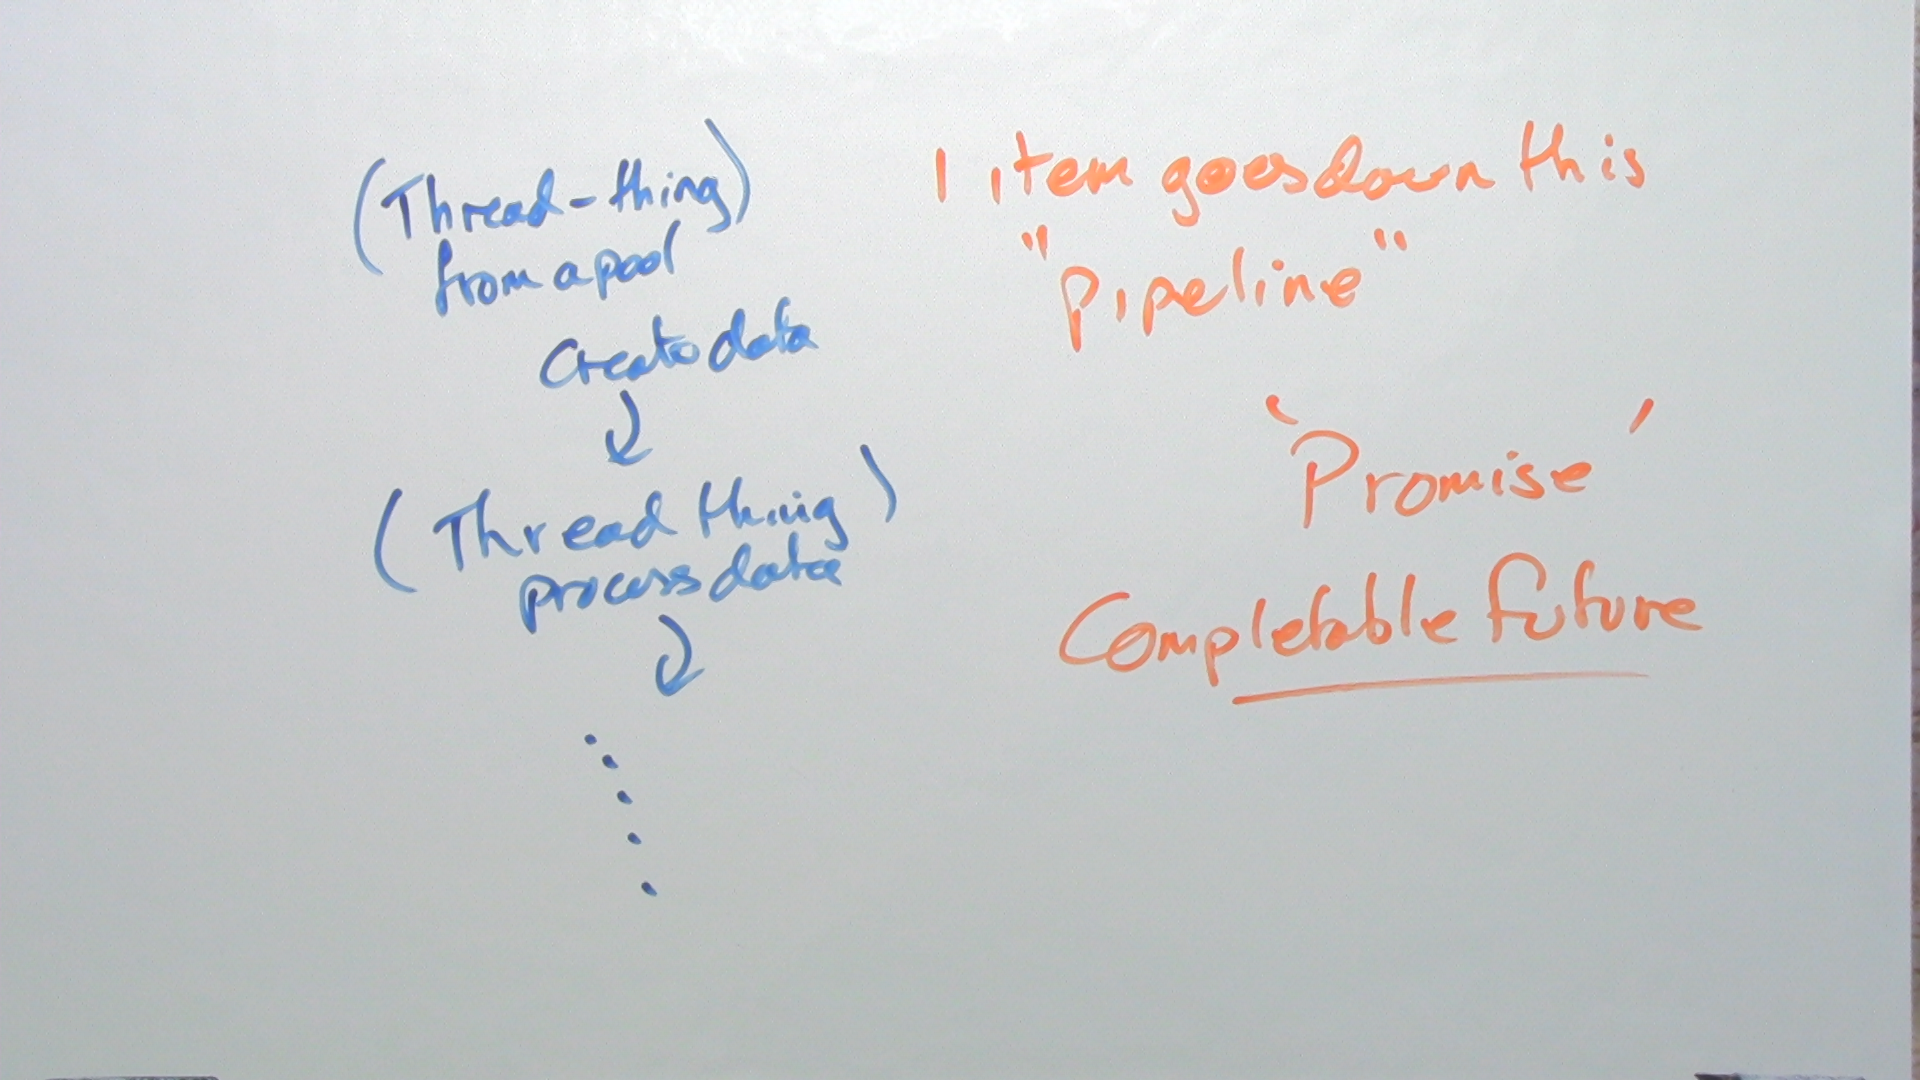 (Thread-thing)
from a pool
Create data
(Thread thing)
process data
1 item goes down this
"pipeline"
'Promise'
Completable Future